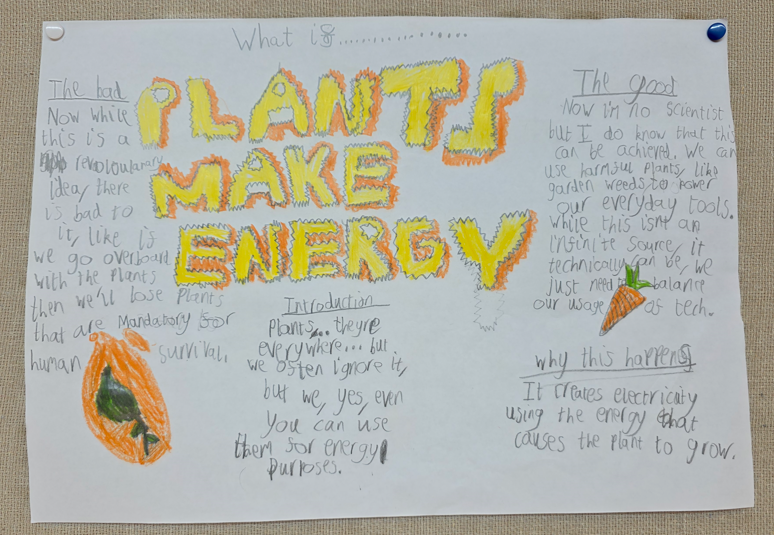 What is...................
PLANTS
MAKE
ENERGY
The bad
Now while
this is a
revoloularary
idea, there
is bad to
it, like is
we go overboard
with the plants
then we'll lose plants
that are Mandatory for
human survival.
Introduction
Plants... theyre
everywhere... but
we often ignore it,
but we, yes, even
You can use
them for energy
purposes.
The good
Now i'm no scientist
but I do know that this
can be achieved. We can
use harmful plants, like
garden weeds, to power
our everyday tools.
While this isnt an
infinite source, it
technically can be, we
just need to balance
our usage of tech.
why this happens
It creates electricity
using the energy that
causes the plant to grow.